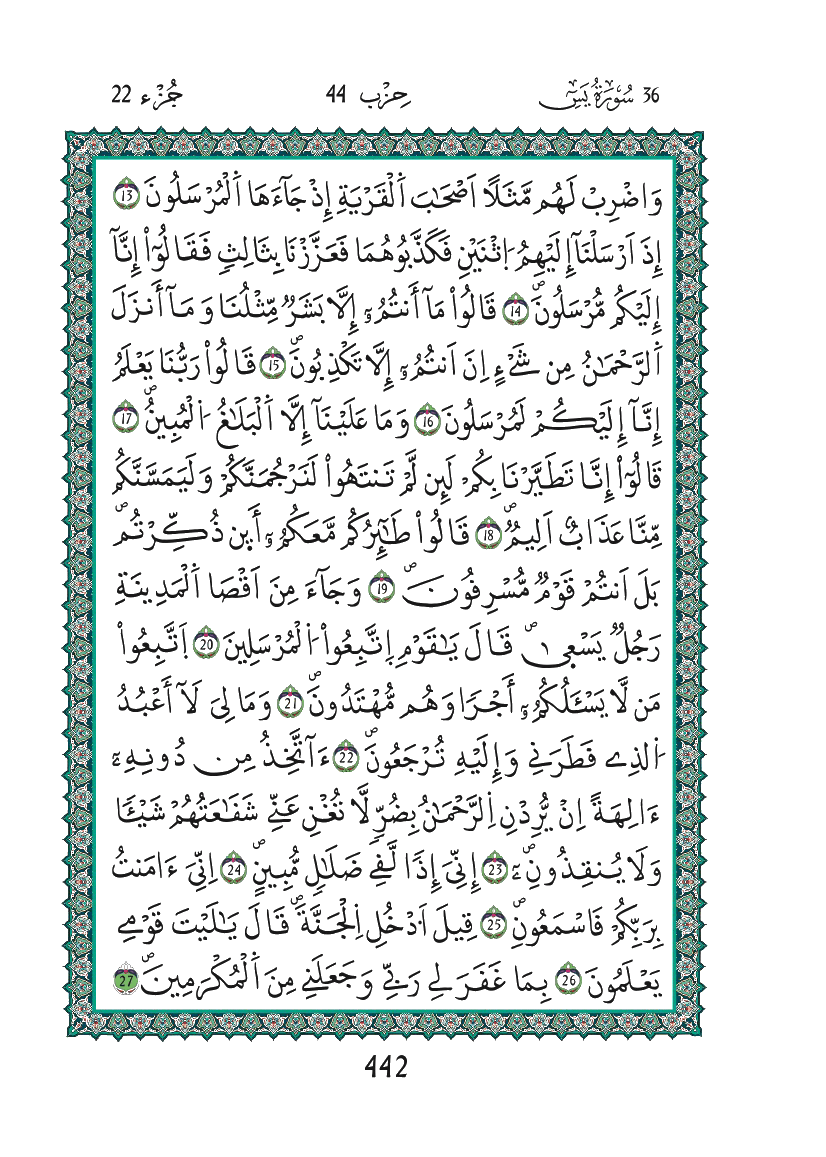 36 سُورَةُ يَسٓ
حِزْب 44
جُزْء 22
وَاضْرِبْ لَهُم مَّثَلًا اَصْحَٰبَ اَ۬لْقَرْيَةِ إِذْ جَآءَهَا اَ۬لْمُرْسَلُونَ 13
إِذَ اَرْسَلْنَآ إِلَيْهِمُ اُ۪ثْنَيْنِ فَكَذَّبُوهُمَا فَعَزَّزْنَا بِثَالِثٖ فَقَالُوٓاْ إِنَّآ
إِلَيْكُم مُّرْسَلُونَۖ 14 قَالُواْ مَآ أَنتُمُۥٓ إِلَّا بَشَرٞ مِّثْلُنَا وَمَآ أَنزَلَ
اَ۬لرَّحْمَٰنُ مِن شَےْءٍ اِنَ اَنتُمُۥٓ إِلَّا تَكْذِبُونَۖ 15 قَالُواْ رَبُّنَا يَعْلَمُ
إِنَّآ إِلَيْكُمْ لَمُرْسَلُونَ 16 وَمَا عَلَيْنَآ إِلَّا اَ۬لْبَلَٰغُ اُ۬لْمُبِينُۖ 17
قَالُوٓاْ إِنَّا تَطَيَّرْنَا بِكُمْ لَئِن لَّمْ تَنتَهُواْ لَنَرْجُمَنَّكُمْ وَلَيَمَسَّنَّكُم
مِّنَّا عَذَابٌ اَلِيمٞۖ 18 قَالُواْ طَٰٓئِرُكُم مَّعَكُمُۥٓ أَيِن ذُكِّرْتُمۖ
بَلَ اَنتُمْ قَوْمٞ مُّسْرِفُونَۖ 19 وَجَآءَ مِنَ اَقْصَا اَ۬لْمَدِينَةِ
رَجُلٞ يَسْعَىٰۖ قَالَ يَٰقَوْمِ اِ۪تَّبِعُواْ اُ۬لْمُرْسَلِينَ 20 اَ۪تَّبِعُواْ
مَن لَّا يَسْـَٔلُكُمُۥٓ أَجْراٗ وَهُم مُّهْتَدُونَۖ 21 وَمَا لِيَ لَآ أَعْبُدُ
اُ۬لذِے فَطَرَنِے وَإِلَيْهِ تُرْجَعُونَۖ 22 ءَآتَّخِذُ مِن دُونِهِۦٓ
ءَالِهَةً اِنْ يُّرِدْنِ اِ۬لرَّحْمَٰنُ بِضُرّٖ لَّا تُغْنِ عَنِّے شَفَٰعَتُهُمْ شَيْـٔاٗ
وَلَا يُنقِذُونِۦٓۖ 23 إِنِّيَ إِذاٗ لَّفِے ضَلَٰلٖ مُّبِينٍۖ 24 اِنِّيَ ءَامَنتُ
بِرَبِّكُمْ فَاسْمَعُونِۖ 25 قِيلَ اَ۟دْخُلِ اِ۬لْجَنَّةَۖ قَالَ يَٰلَيْتَ قَوْمِے
يَعْلَمُونَ 26 بِمَا غَفَرَ لِے رَبِّے وَجَعَلَنِے مِنَ اَ۬لْمُكْرَمِينَۖ 27
442